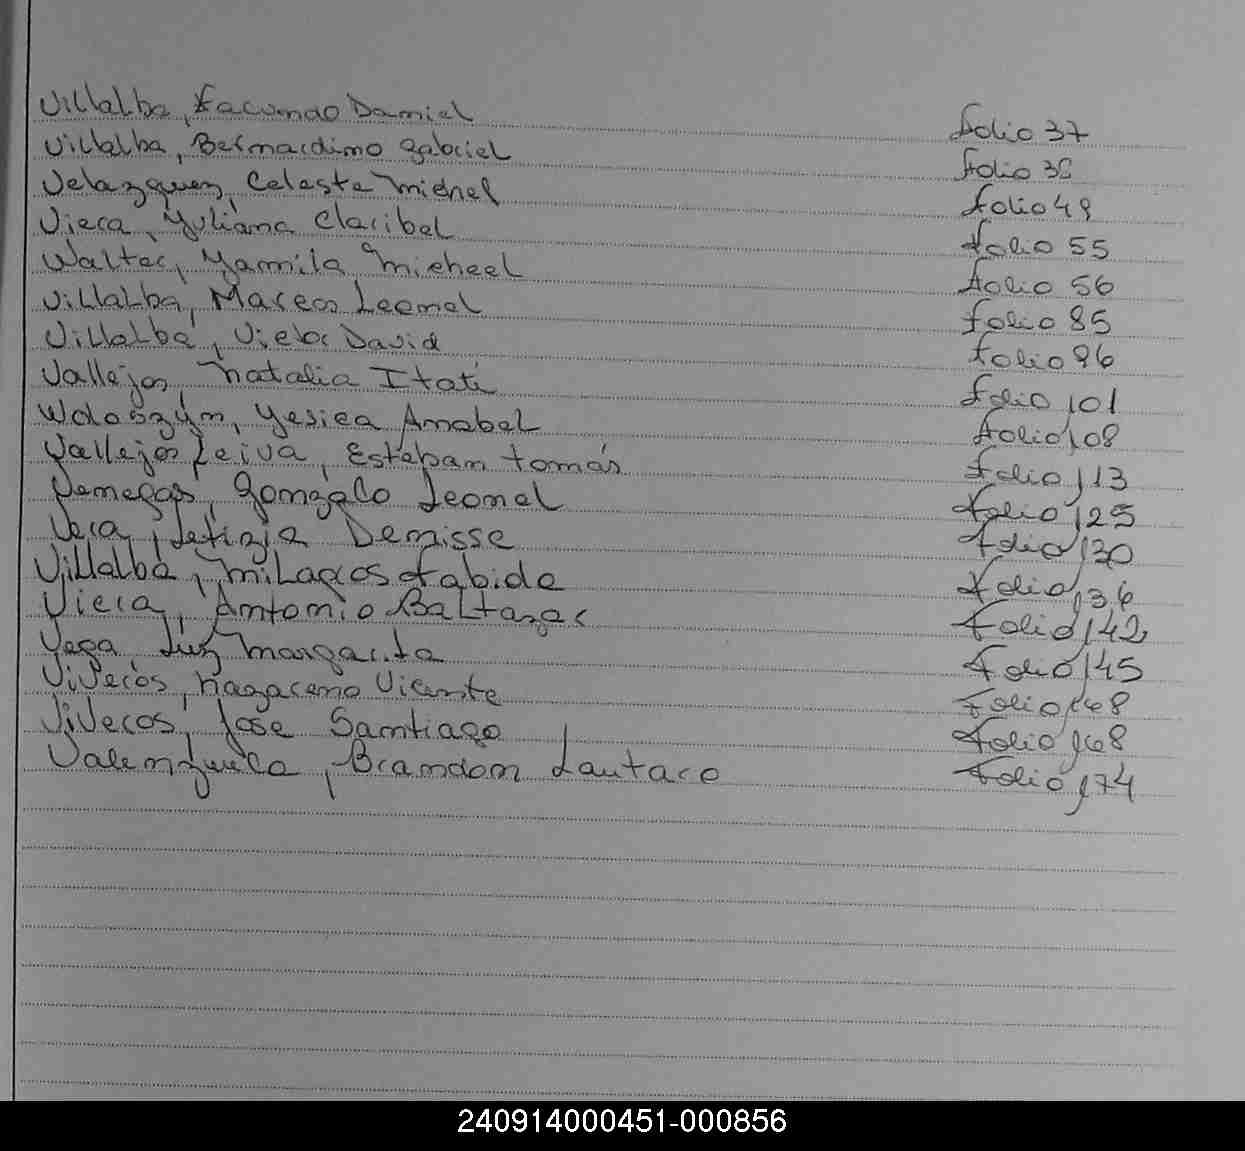 Villalba, Facundo Daniel folio 37
Villalba, Bernardino Gabriel folio 38
Velazquez, Celeste Michel folio 49
Viera, Yuliana Claribel folio 55
Walter, Yamila Micheel folio 56
Villalba, Marcos Leonel folio 85
Villalba, Victor David folio 96
Vallejos Natalia Itatí folio 101
Woloszyn, Yesica Anabel folio 108
Vallejos Leiva, Esteban tomás folio 113
Venegas, Gonzalo Leonel folio 125
Vera, Letizia Denisse folio 130
Villalba, Milagros fabida folio 136
Viera, Antonio Baltazar folio 142
Vega, Luz Margarita folio 145
Viveros, Nazareno Vicente folio 168
Viveros, Jose Santiago folio 168
Valenzuela, Brandon Lautaro folio 174
240914000451-000856